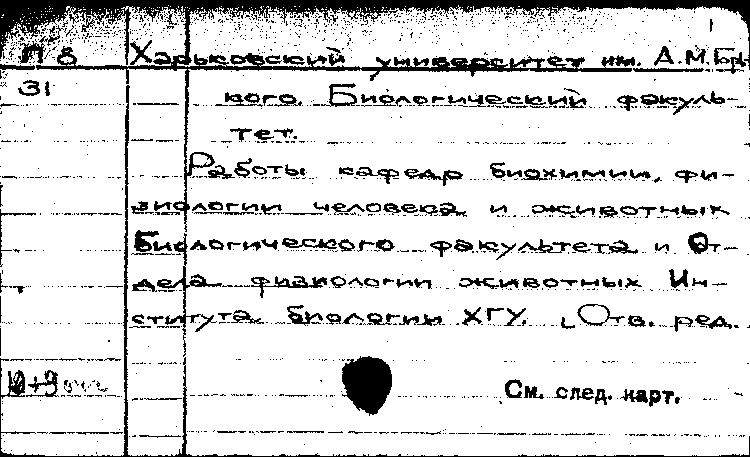 1
П 8 Харьковский университет им. А.М.Горь-
31 кого. Биологический факуль-
тет.
Работы кафедр биохимии, фи-
зиологии человека и животных
Биологического факультета и От-
дела физиологии животных Ин-
ститута биологии ХГУ. [Отв. ред.
См. след. карт.